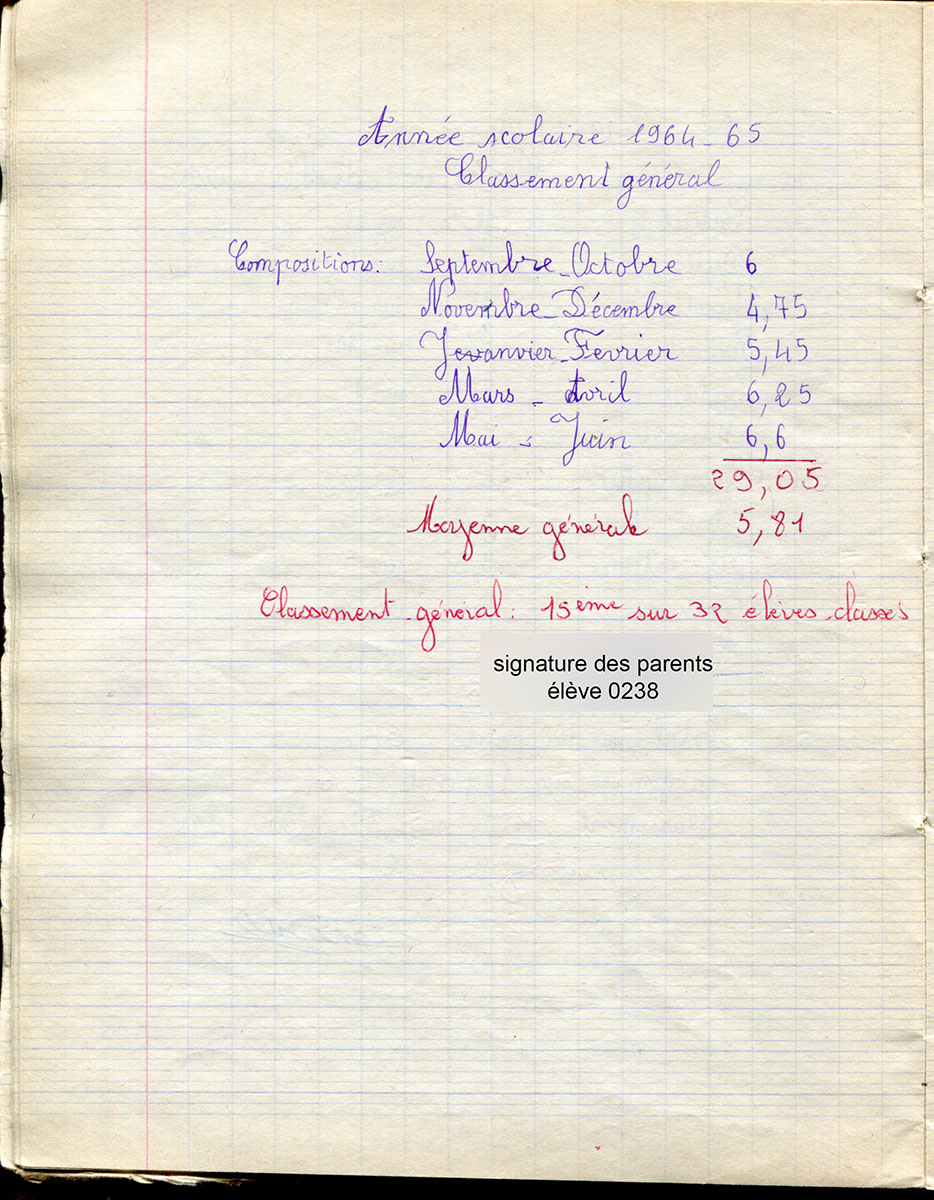 Année scolaire 1964-65
Classement général
Compositions: Septembre-Octobre 6
Novembre-Décembre 4,75
Janvier-Fevrier 5,45
Mars - Avril 6,25
Mai - Juin 6,6
29,05
Moyenne générale 5,81
Classement général: 15ème sur 32 élèves classés
signature des parents
élève 0238